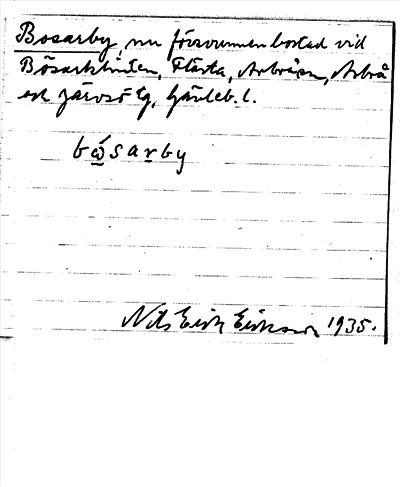 Bosarby, nu försvunnen bostad vid
Bösarklinten, Flästa, Arbråsn, Arbrå
och Järvsö tg, Gävleb. l.
bώ̲saṟby
Nils Erik Eriksson 1935.